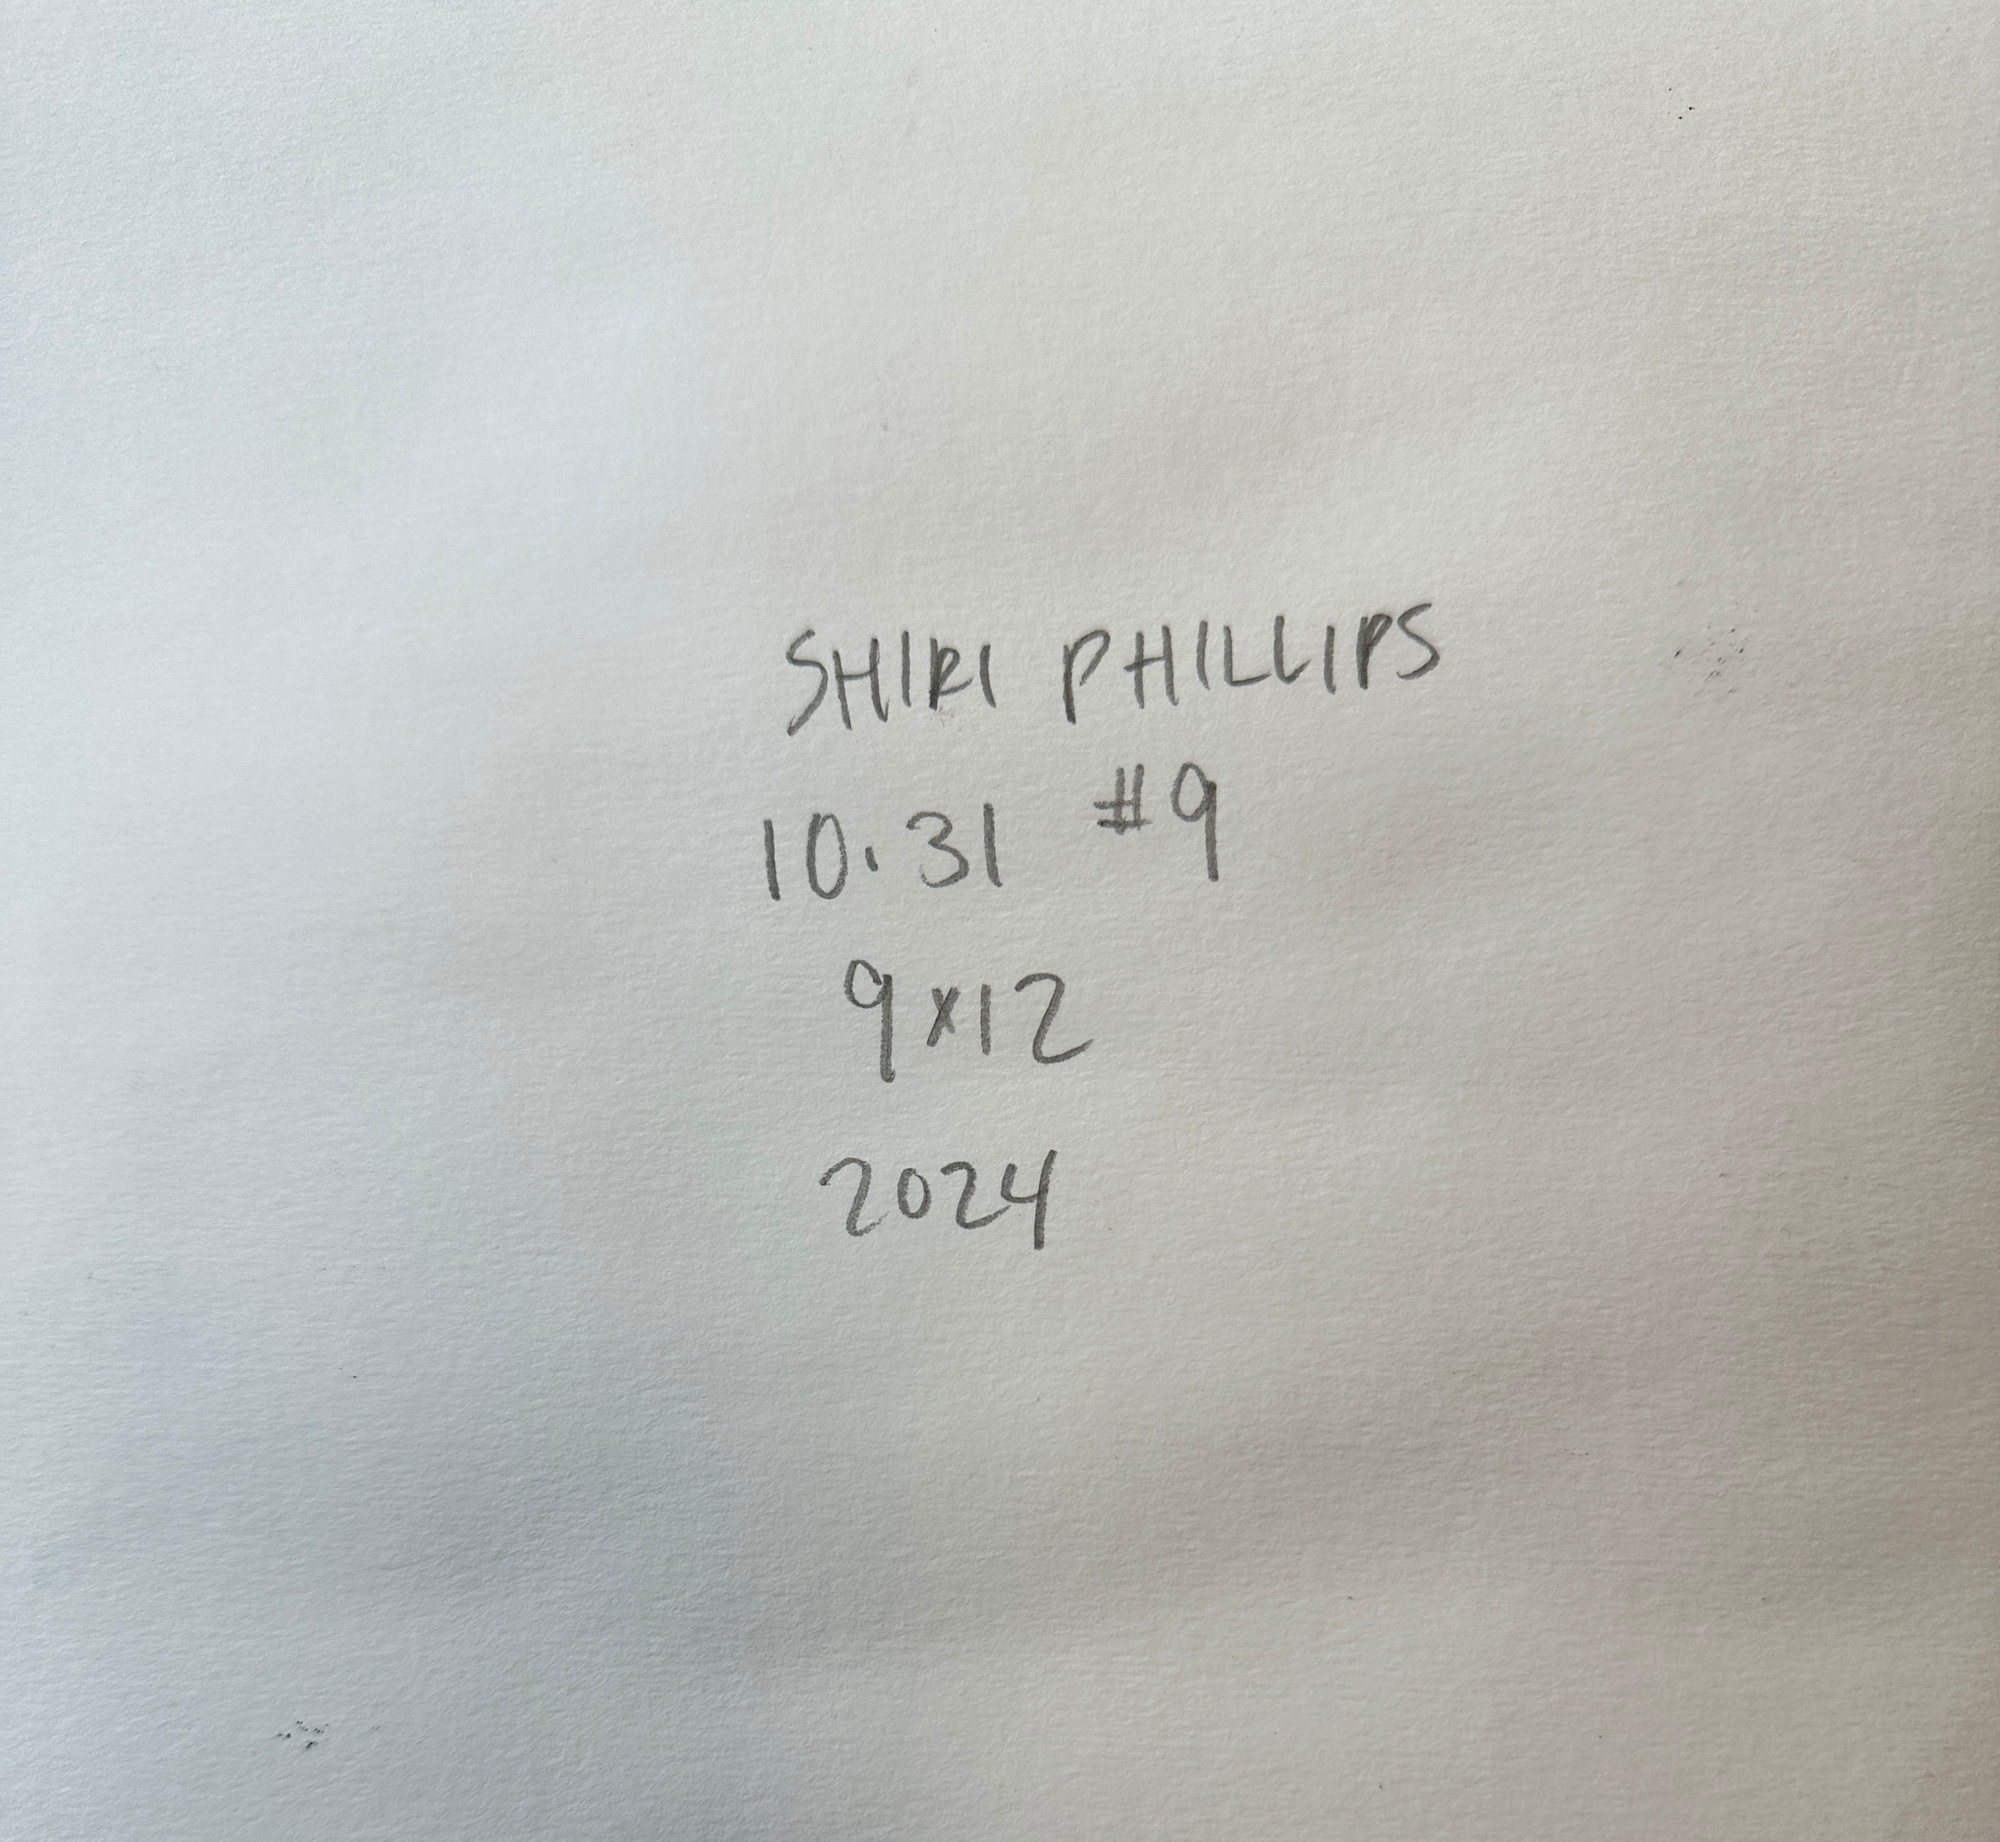 SHIRI PHILLIPS
10.31 #9
9x12
2024